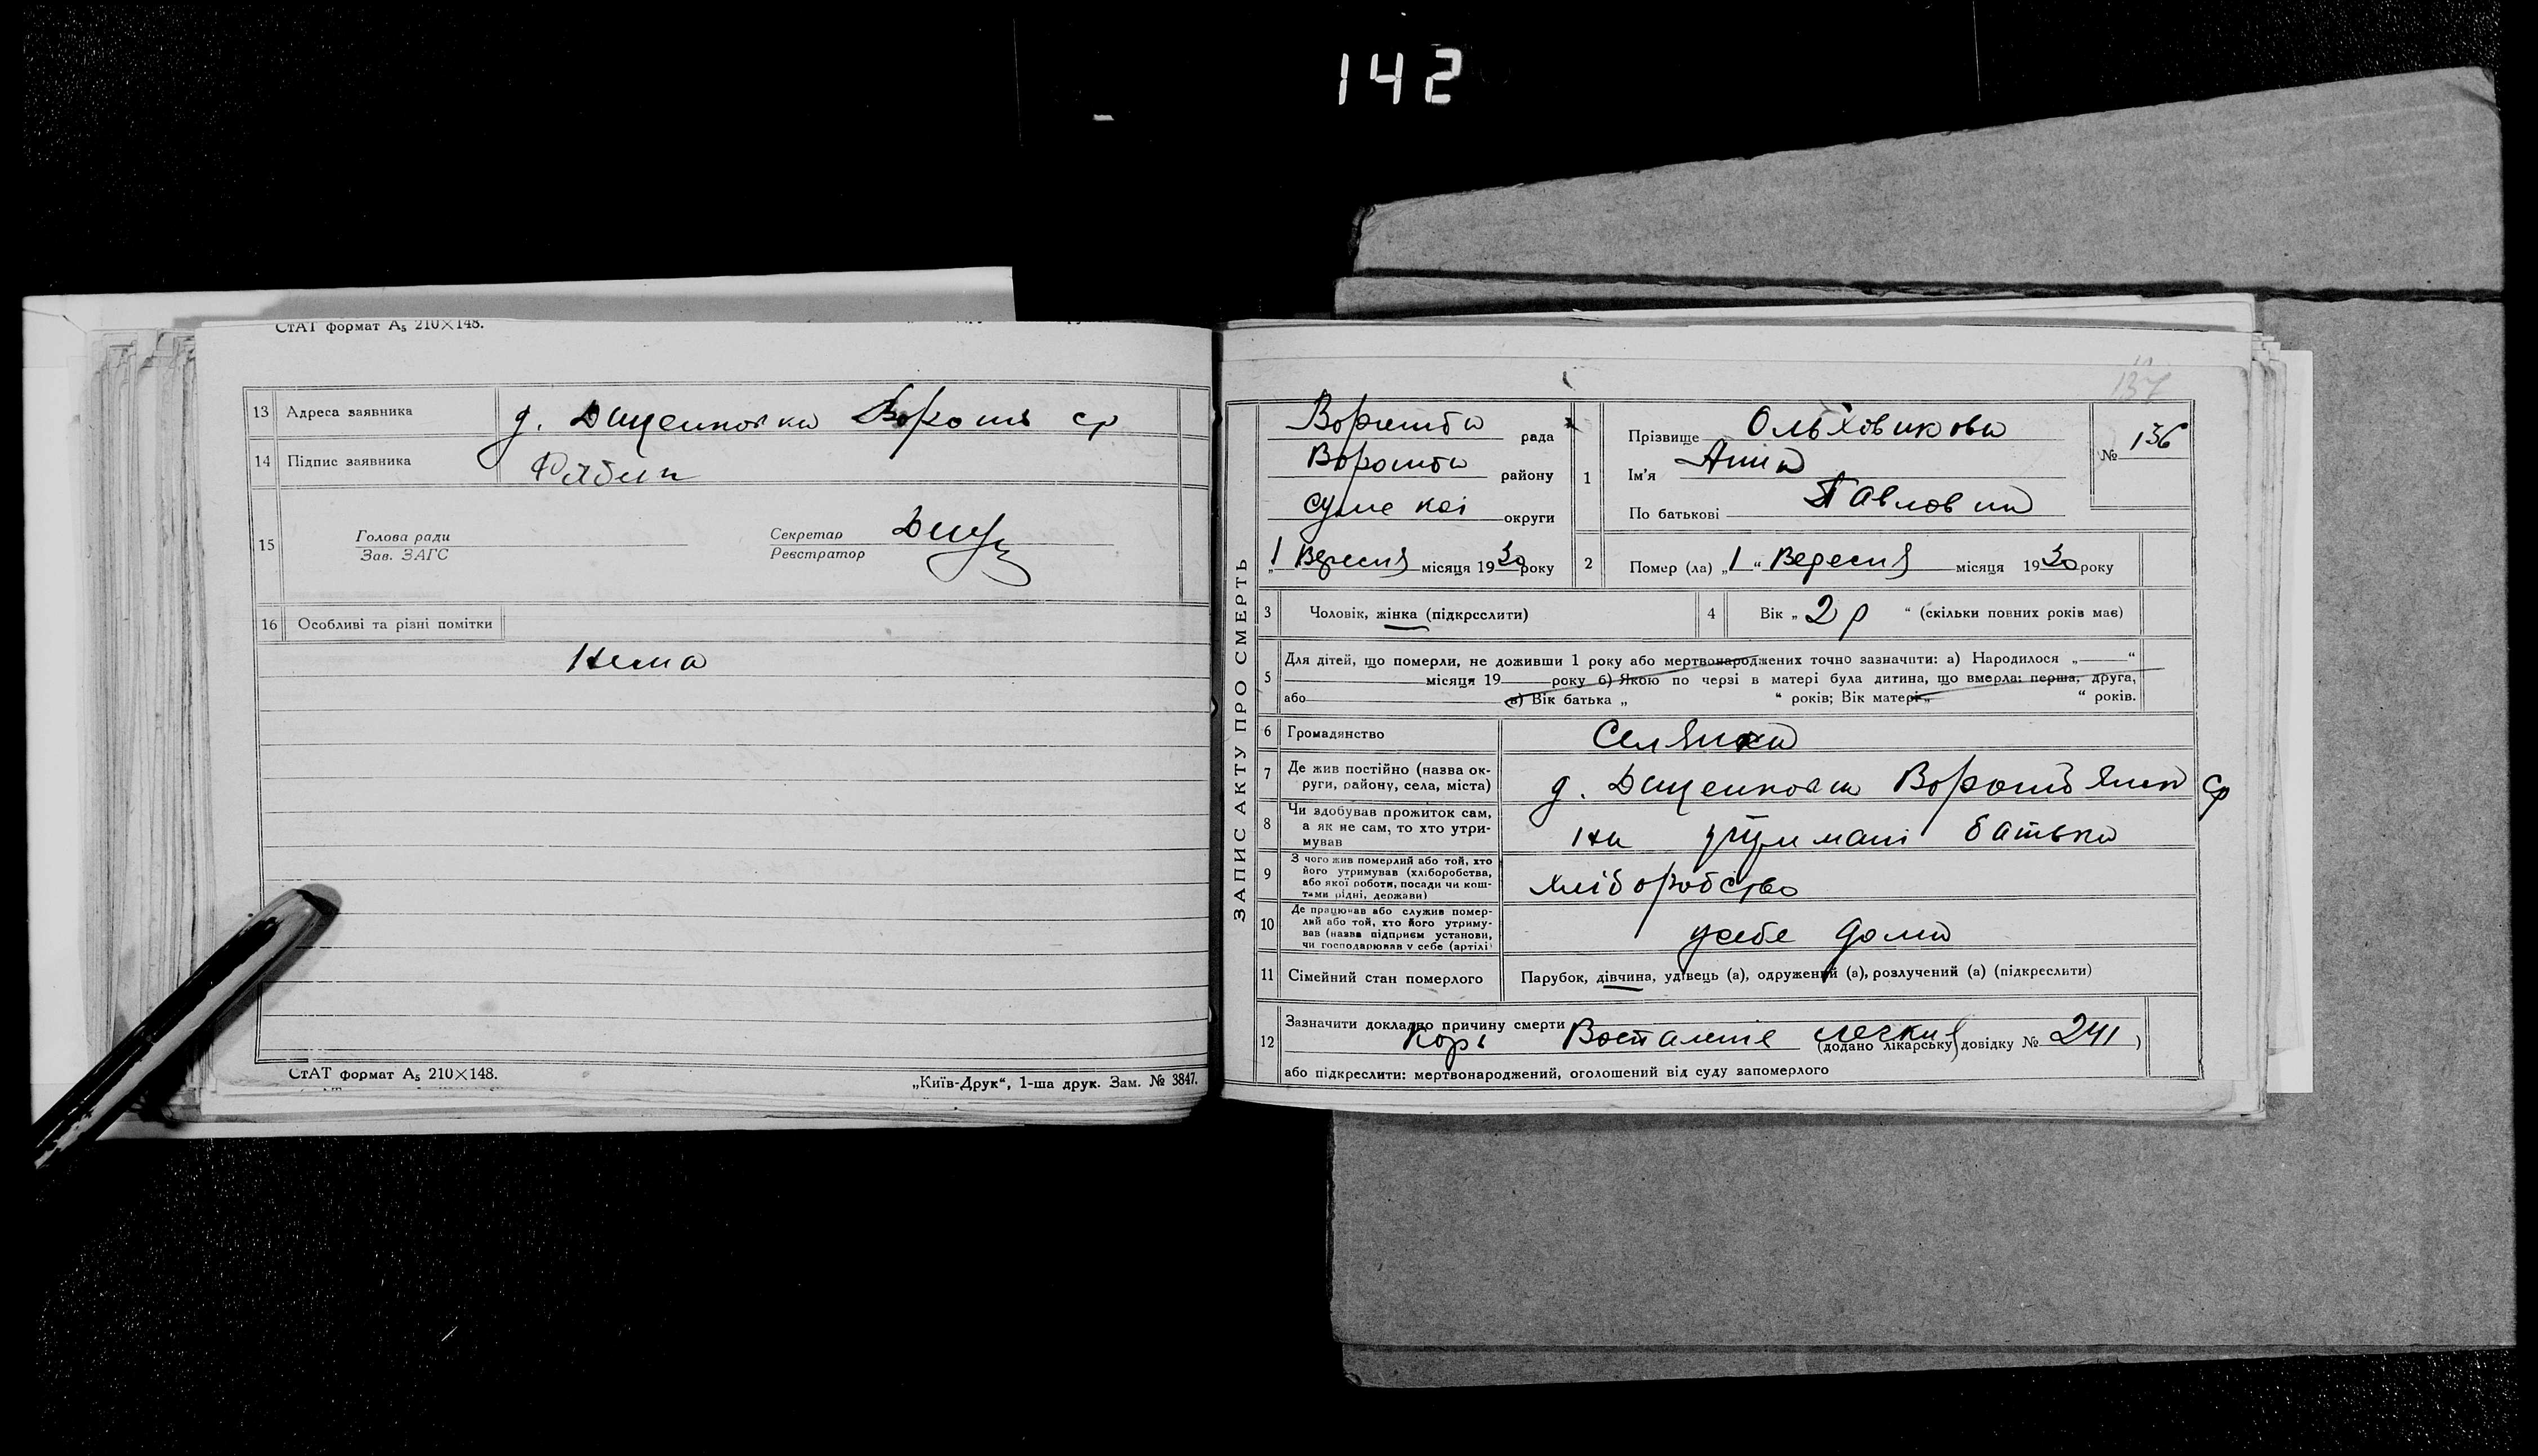 142
СтАТ формат А₅ 210×148.
13 Адреса заявника д. Дищенковка Ворожб ср
14 Підпис заявника
15 Голова ради
Зав. ЗАГС
Секретар
Реєстратор
16 Особливі та різні помітки
Нема
СтАТ формат А₅ 210×148.
„Київ-Друк“, 1-ша друк. Зам. № 3847.
137
ЗАПИС АКТУ ПРО СМЕРТЬ
Ворожба рада
Ворожба району
Сумскої округи
„1 Вересня місяця 1930 року
1 Прізвище Ольховикова
Ім'я Анна
По батькові Павловна
№ 136
2 Помер (ла) „1“ Вересня місяця 1930 року
3 Чоловік, жінка (підкреслити)
4 Вік „2 р“ (скільки повних років має)
5 Для дітей, що померли, не доживши 1 року або мертвонароджених точно зазначити: а) Народилося „ “
місяця 19 року б) Якою по черзі в матері була дитина, що вмерла: перша, друга,
або в) Вік батька „ “ років; Вік матері „ “ років.
6 Громадянство Селянка
7 Де жив постійно (назва ок-
руги, району, села, міста) д. Дищенковка Ворожбянск ср
8 Чи здобував прожиток сам,
а як не сам, то хто утри-
мував на утримані батька
9 З чого жив померлий або той, хто
його утримував (хліборобства,
або якої роботи, посади чи кош-
тами рідні, держави) хліборобство
10 Де працював або служив помер-
лий або той, хто його утриму-
вав (назва підприєм установи,
чи господарював у себе (артілі) усебе дома
11 Сімейний стан померлого Парубок, дівчина, удівець (а), одружений (а), розлучений (а) (підкреслити)
12 Зазначити докладно причину смерти
Корь Воспаление легких (додано лікарську довідку № 241)
або підкреслити: мертвонароджений, оголошений від суду запомерлого